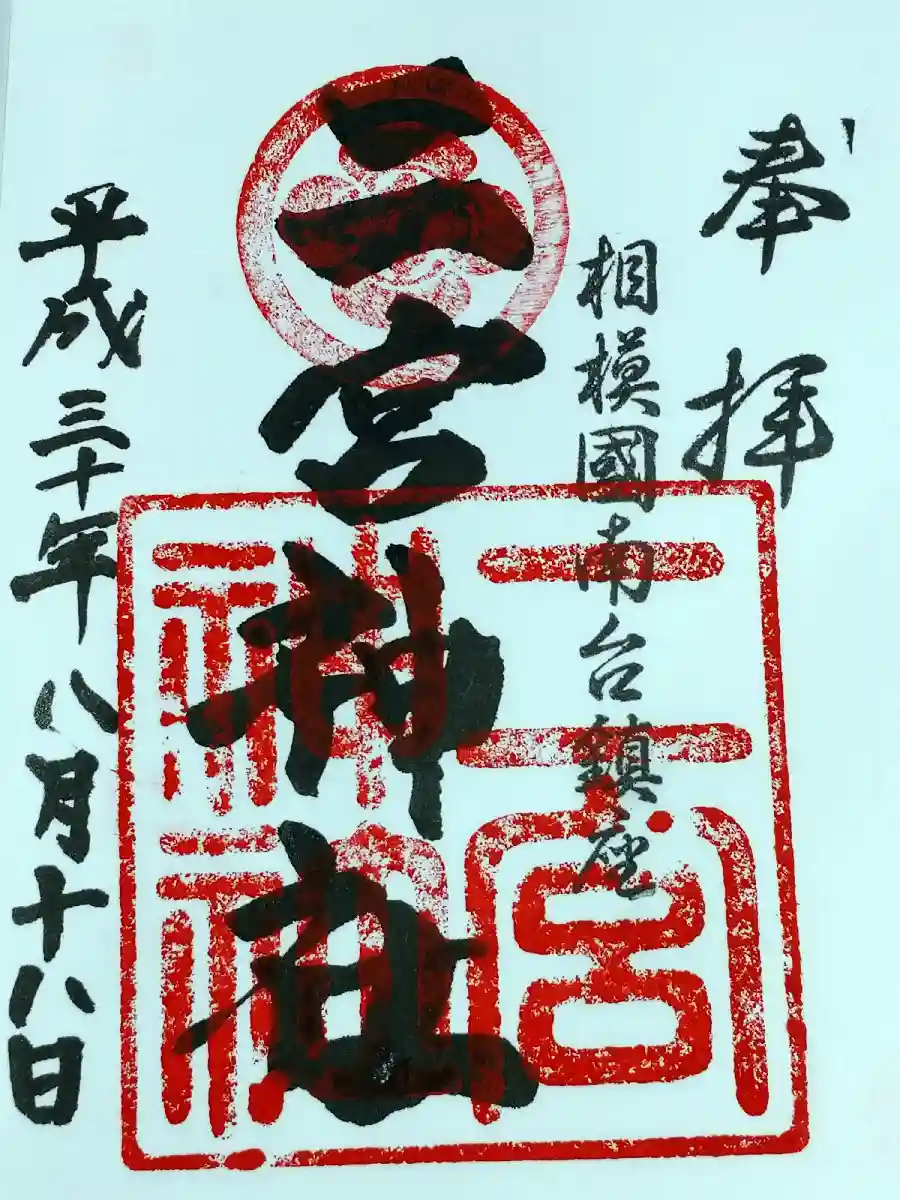 奉拝
相模國南台鎮座
二宮神社
二宮神社
平成三十年八月十八日